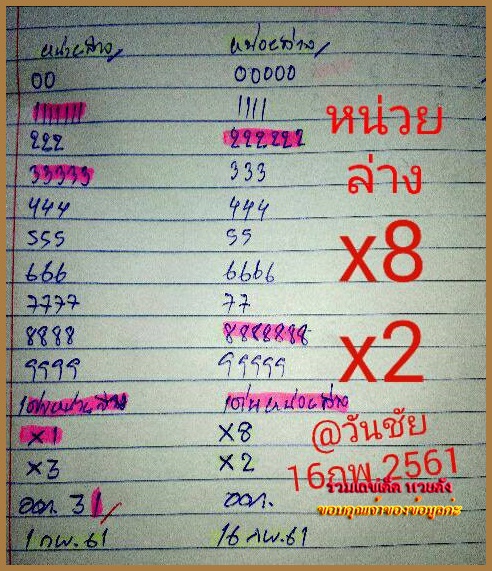 หน่วยล่าง หน่วยล่าง
00 00000
11111111 1111
222 222222
33333 333
444 444
555 55
666 6666
7777 77
8888 8888888
9999 99999
เด่นหน่วยล่าง เด่นหน่วยล่าง
x1 x8
x3 x2
ออก. 31 ออก.
1 กพ. 61 16 กพ. 61
หน่วย
ล่าง
x8
x2
@วันชัย
16กพ.2561
รวมเลขเด็ด หวยดัง
ขอบคุณเจ้าของข้อมูลค่ะ